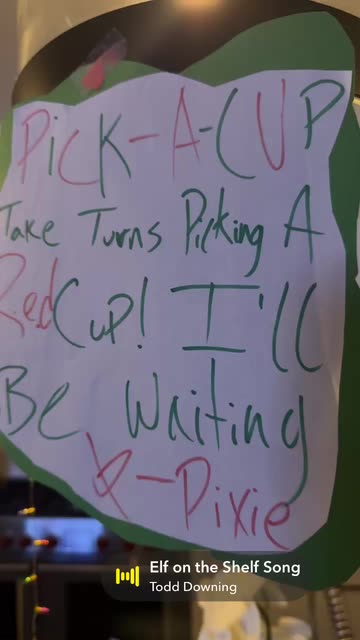 PiCK-A-CUP
Take Turns Picking A
Red Cup! I'll
Be Waiting
-Pixie
Elf on the Shelf Song
Todd Downing